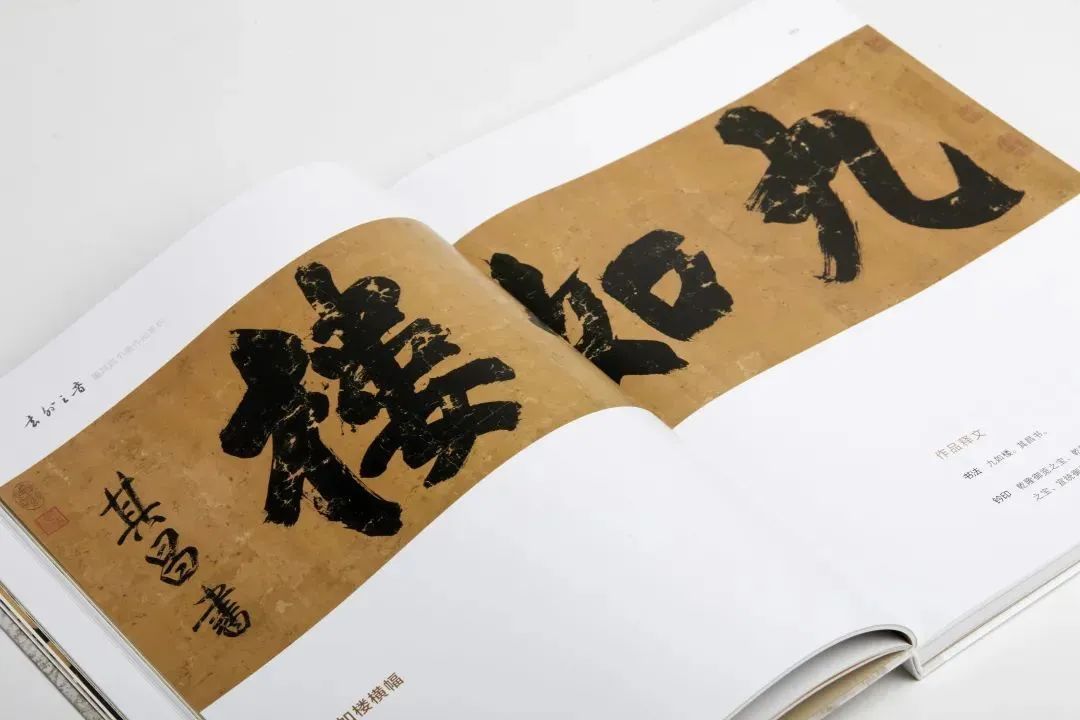 九如樓
其昌書
如楼横幅
作品释文
书法 九如楼。其昌书。
钤印 乾隆御览之宝、乾
之宝、宣统御